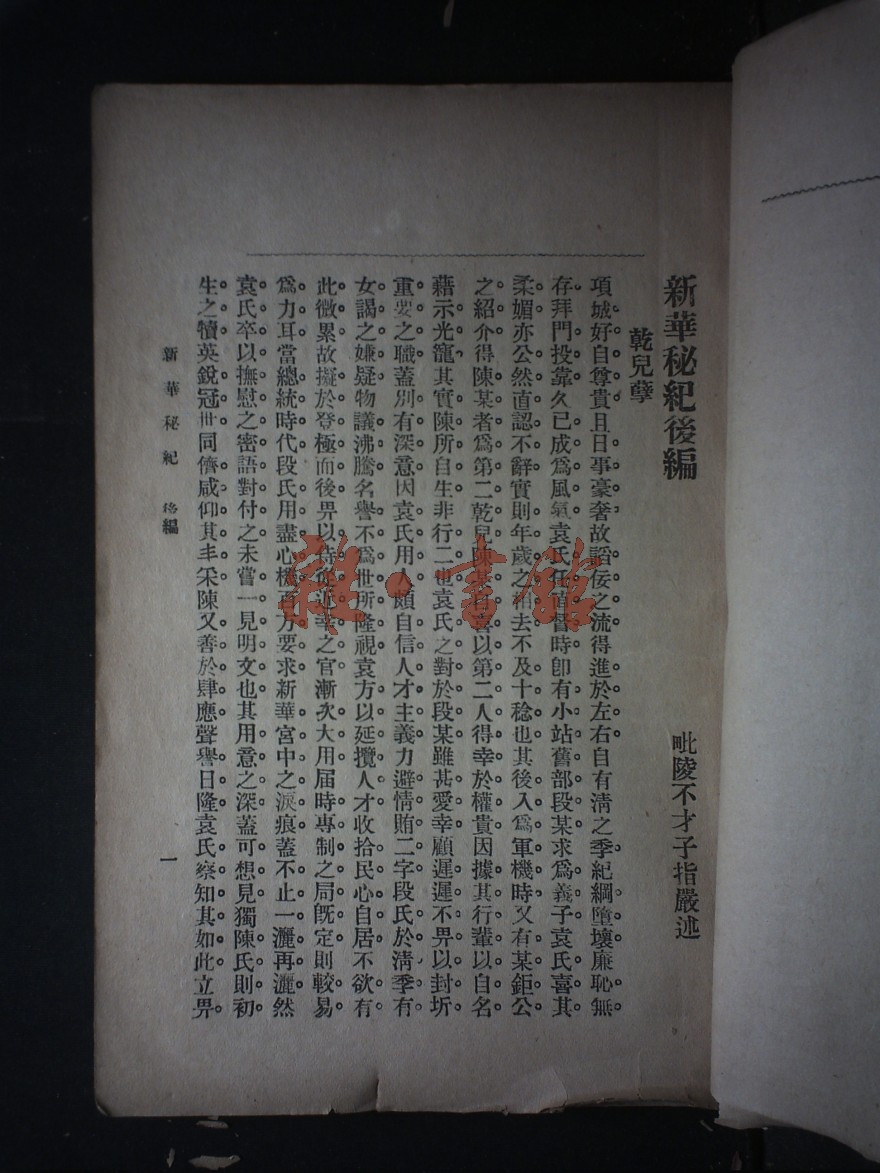 新華秘紀後編
毗陵不才子指嚴述
乾兒孽
項城好自尊貴且日事豪奢故謟佞之流得進於左右自有淸之季紀綱墮壞廉恥無。
存拜門投靠久已成爲風氣袁氏任直督時卽有小站舊部段某求爲義子袁氏喜其。
柔媚亦公然直認不辭實則年歲之相去不及十稔也其後入爲軍機時又有某鉅公
之紹介得陳某者爲第二乾兒陳某者喜以第二人得幸於權貴因據其行輩以自名
藉示光寵其實陳所自生非行二世袁氏之對於段某雖甚愛幸顧遲遲不畀以封圻
重要之職蓋別有深意因袁氏用人頗自信人才主義力避情賄二字段氏於淸季有
女謁之嫌疑物議沸騰名譽不爲世所隆視袁方以延攬人才收拾民心自居不欲有
此微累故擬於登極而後畀以侍從近幸之官漸次大用届時專制之局旣定則較易
爲力耳當總統時代段氏用盡心機百方要求新華宮中之淚痕蓋不止一灑再灑然
袁氏卒以撫慰之密語對付之未嘗一見明文也其用意之深蓋可想見獨陳氏則初
生之犢英銳冠世同儕咸仰其丰采陳又善於肆應聲譽日隆袁氏察知其如此立畀
新華秘紀　後編
一
雜·書館